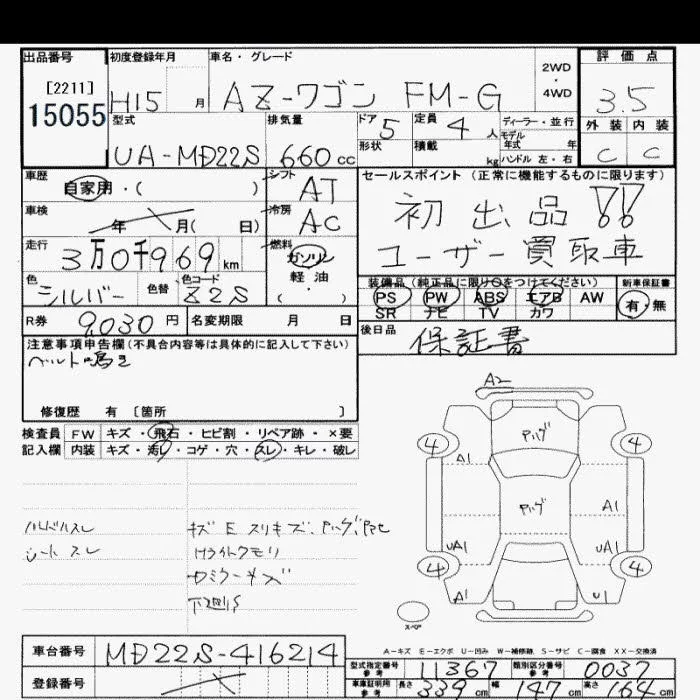 出品番号 初度登録年月 車名・グレード 2WD・4WD 評価点
[2211]
15055
H15 月 AZ-ワゴン FM-G 3.5
型式 排気量 ドア 定員 ディーラー・並行 外装 内装
5 4 人 モデル 年式
UA-MD22S 660cc 形状 積載 kg ハンドル 左・右 C C
車歴 自家用・( ) シフト AT セールスポイント(正常に機能するものに限ります)
車検 年 月( 日) 冷房 AC 初出品!!
走行 3万0千969km 燃料 ガソリン・軽油・( ) ユーザー買取車
色 シルバー 色替 色コード Z2S 装備品(純正品に限り○をつけてください) 新車保証書
PS PW ABS エアB AW 有・無
SR ナビ TV カワ
R券 9,030円 名変期限 月 日 後日品 保証書
注意事項申告欄(不具合内容等は具体的に記入して下さい)
ベルト鳴き
修復歴 有 〔箇所 〕
検査員 FW キズ・飛石・ヒビ割・リペア跡・×要
記入欄 内装 キズ・汚し・コゲ・穴・スレ・キレ・破レ
A2
4 4
A1
A1
UA1 UA1
4 4
A1 U1
ハンドルスレ
シートスレ
キズ E スリキズ
スペア
A-キズ E-エクボ U-凹み W-補修跡 S-サビ C-腐食 XX-交換済
車台番号 MD22S-416214
型式指定番号 参考 11367 類別区分番号 参考 0037
登録番号
車庫証明用 参考 長さ 339cm 幅 147cm 高さ 164cm